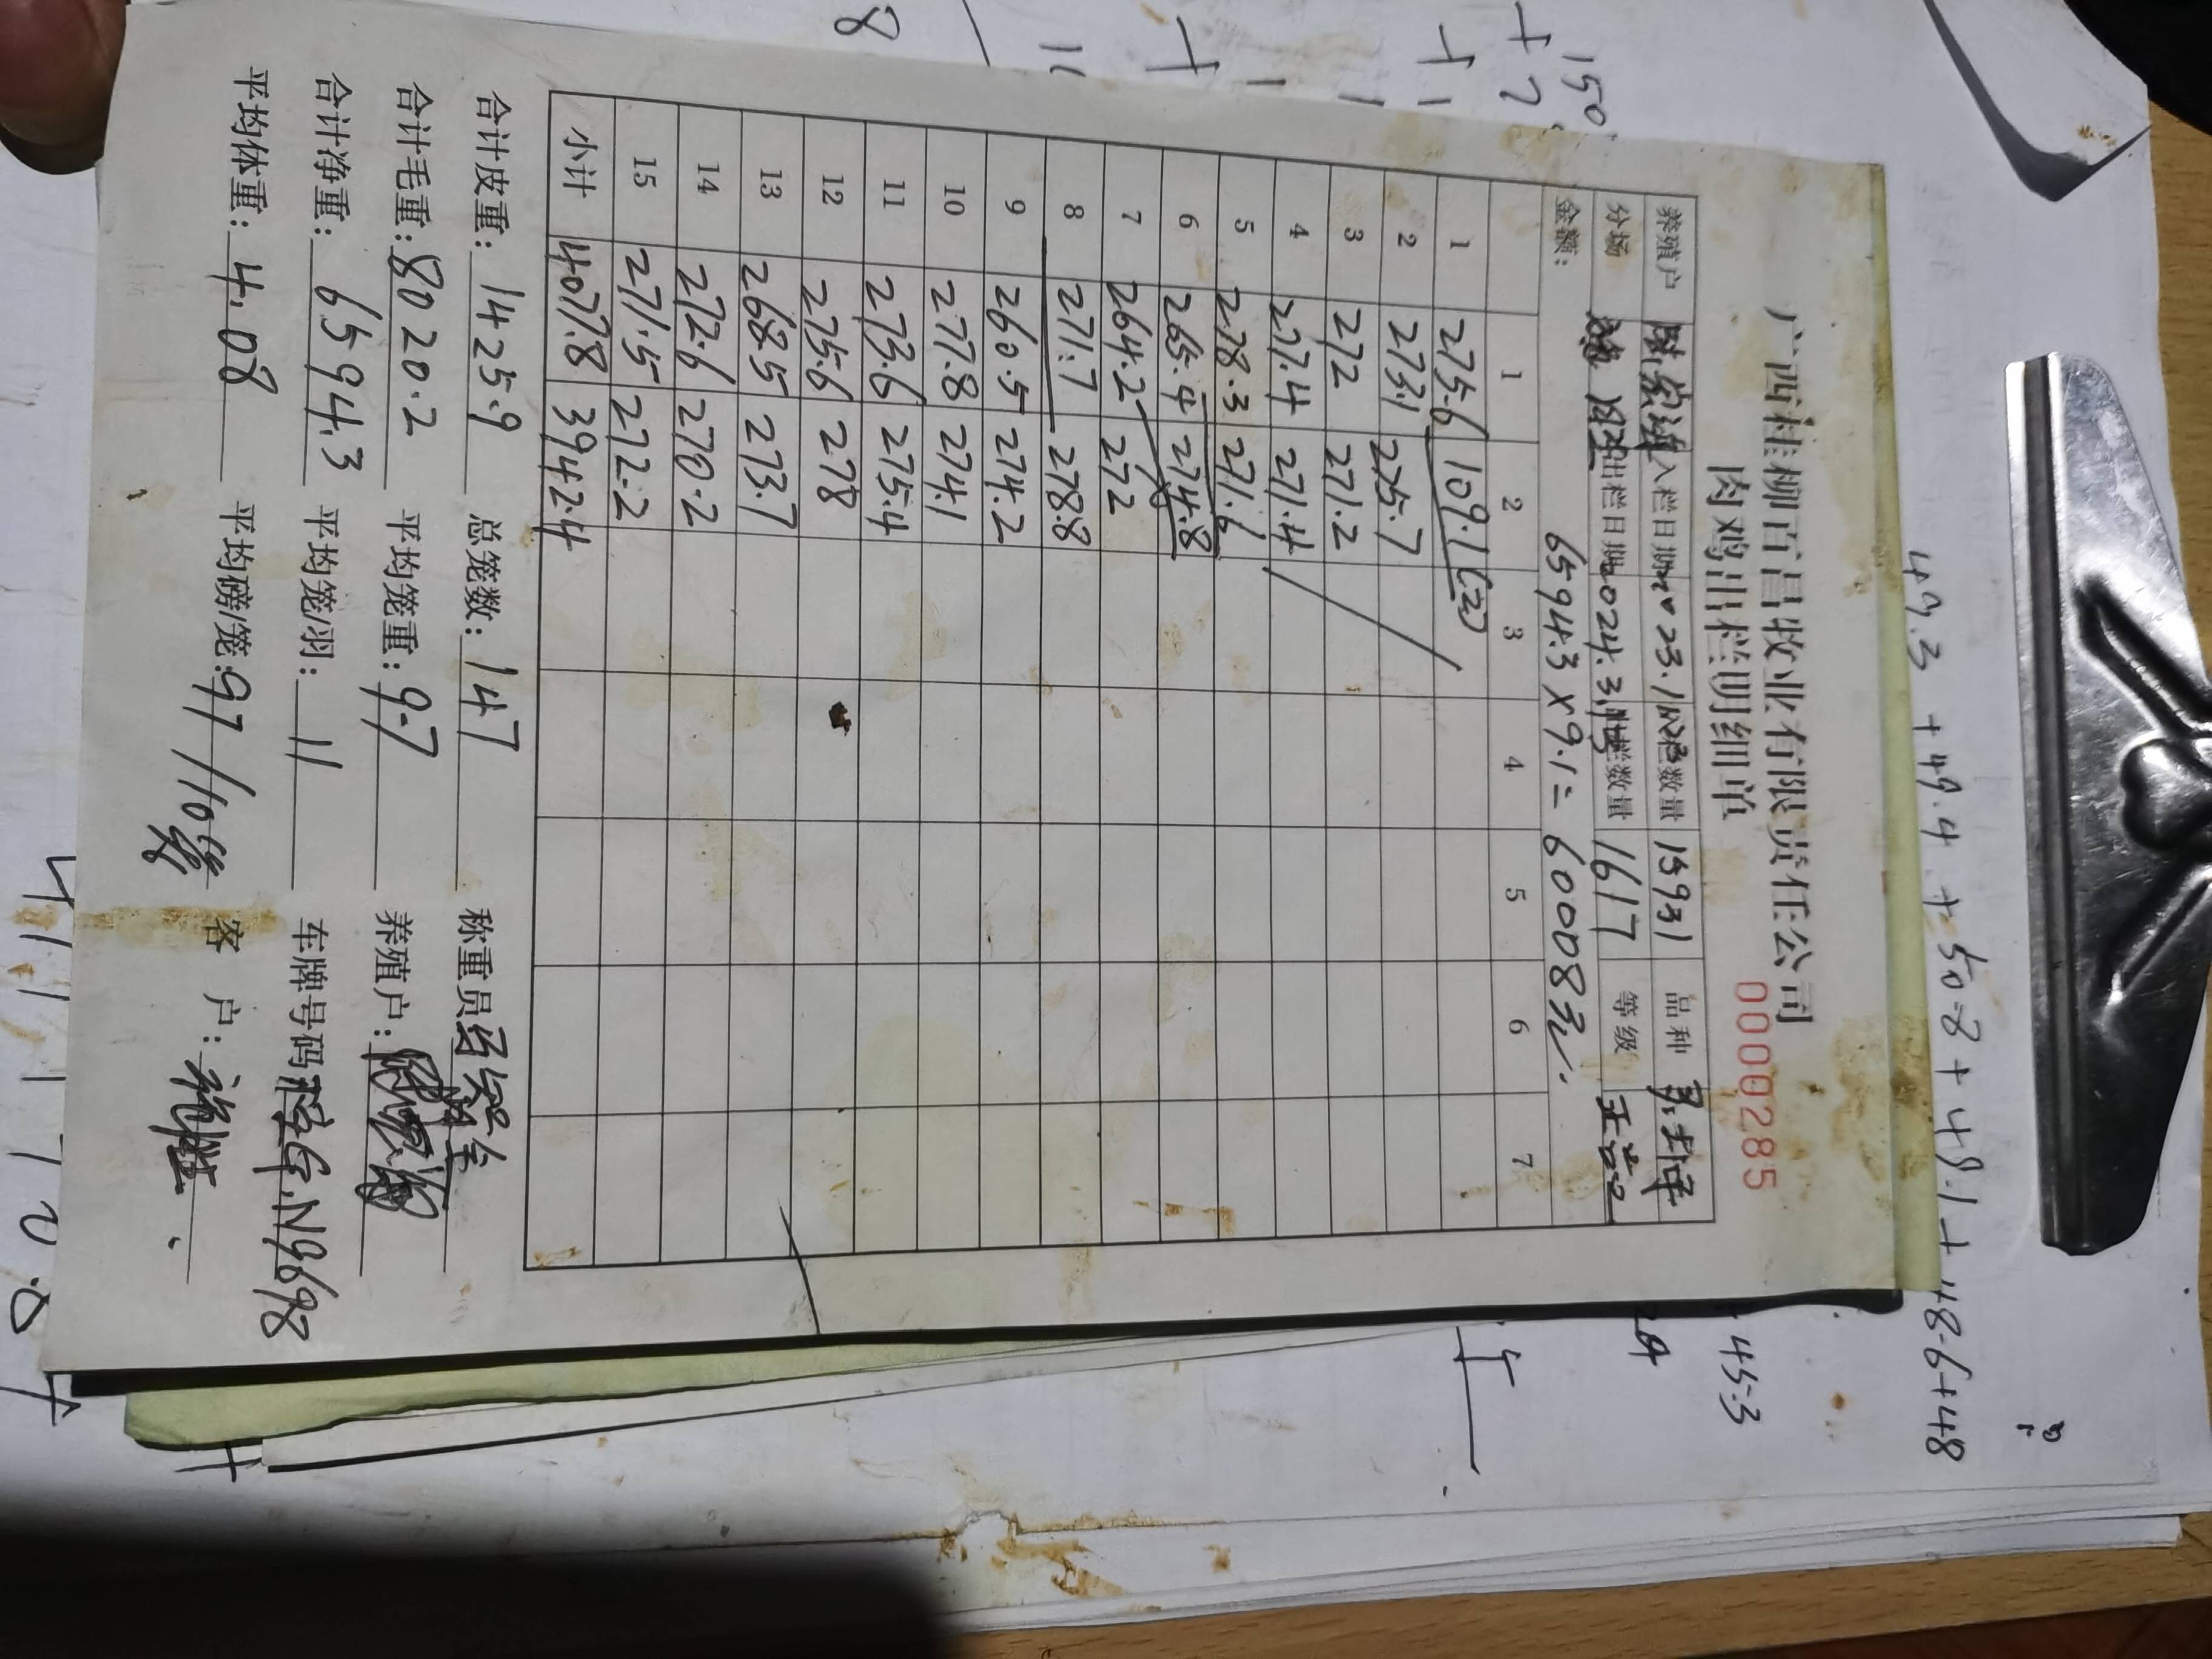 广西桂柳百昌牧业有限责任公司
肉鸡出栏明细单
00000285
养殖户 入栏日期 2023.11. 数量 15931 品种
分场 出栏日期 2024.3. 数量 1617 等级
金额： 6594.3×9.1=60008元
1 2 3 4 5 6 7
1 275.6 109.1
2 273.1 225.7
3 272 271.2
4 277.4 271.4
5 278.3 271.6
6 265.4 274.8
7 264.2 272
8 271.7 278.8
9 260.5 274.2
10 277.8 274.1
11 273.6 275.4
12 275.6 278
13 268.5 273.7
14 272.6 270.2
15 271.5 272.2
小计 4077.8 3942.4
合计皮重：1425.9 总笼数：147 称重员
合计毛重：8020.2 平均笼重：9.7 养殖户：
合计净重：6594.3 平均笼/羽：11 车牌号码 N9698
平均体重：4.08 平均磅/笼：97/10 客 户：
49.3 +49.4 + 50.2 + 49.1 + 48.6+48
45.3